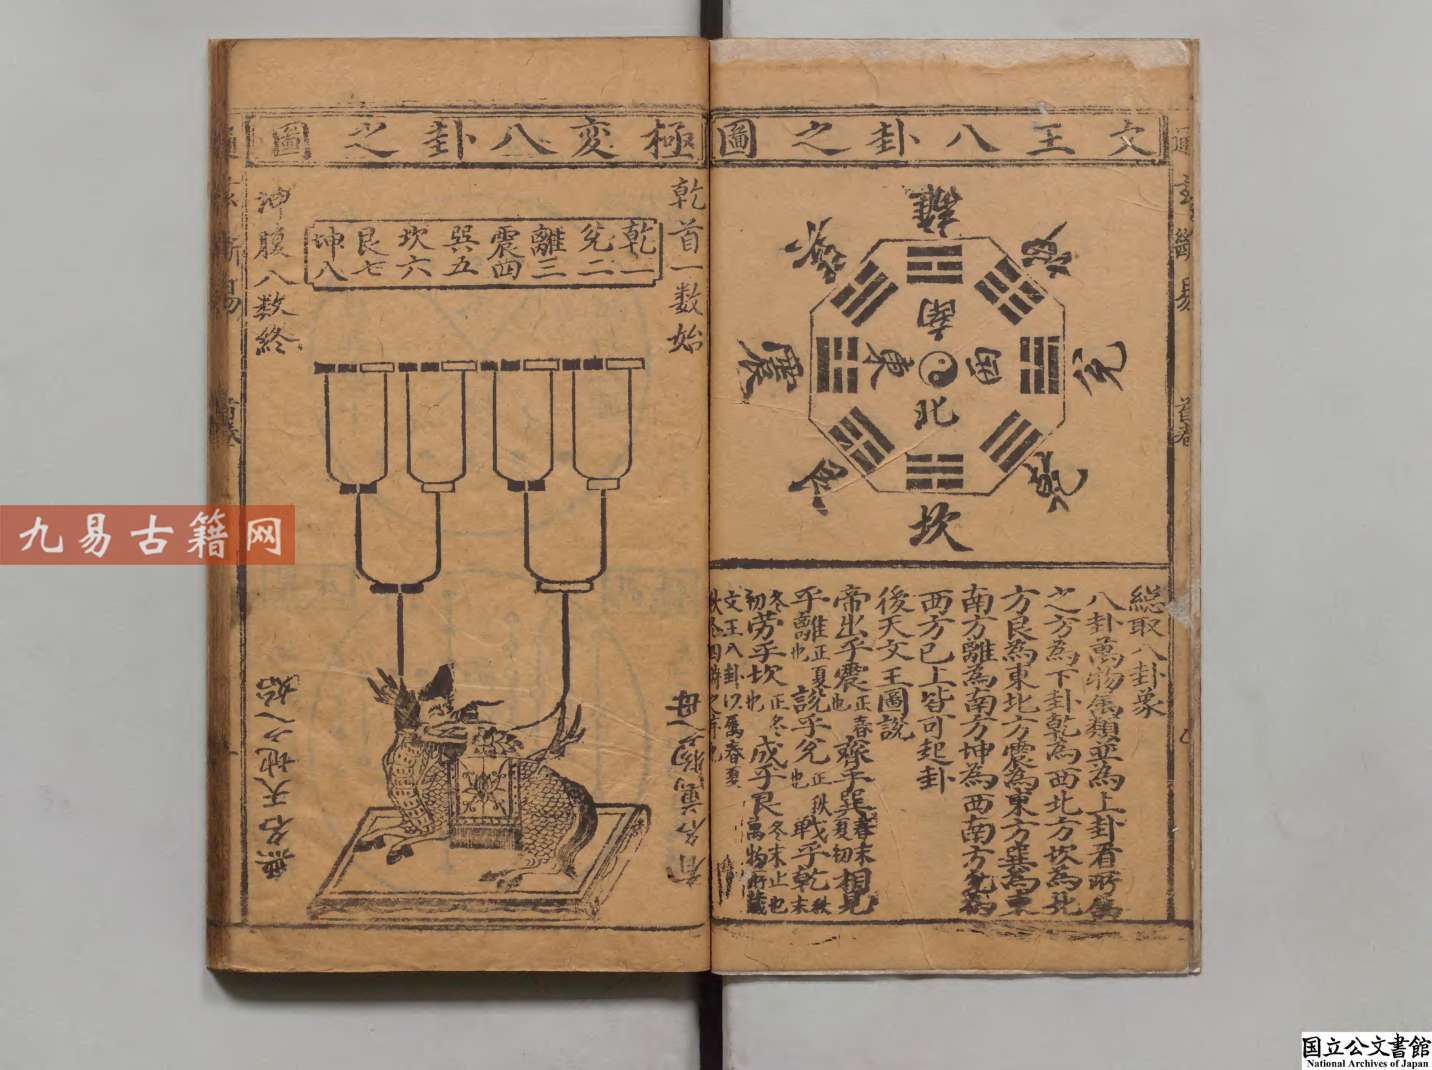 文王八卦之圖
離
坤
兌
乾
坎
艮
震
巽
南
西
北
東
総取八卦象
八卦萬物属類並為上卦看所属
之方為下卦乾為西北方坎為北
方艮為東北方震為東方巽為東
南方離為南方坤為西南方兌為
西方已上皆可起卦
後天文王圖説
帝出乎震正春也齊乎巽春末夏初相見
乎離正夏也説乎兌正秋也戰乎乾秋末
冬初勞乎坎正冬也成乎艮冬末止也萬物所藏
文王八卦以属春夏
極変八卦之圖
乾首一数始
乾一
兌二
離三
震四
巽五
坎六
艮七
坤八
坤腹八数終
有名萬物之母
無名天地之始
首卷
九易古籍网
国立公文書館
National Archives of Japan